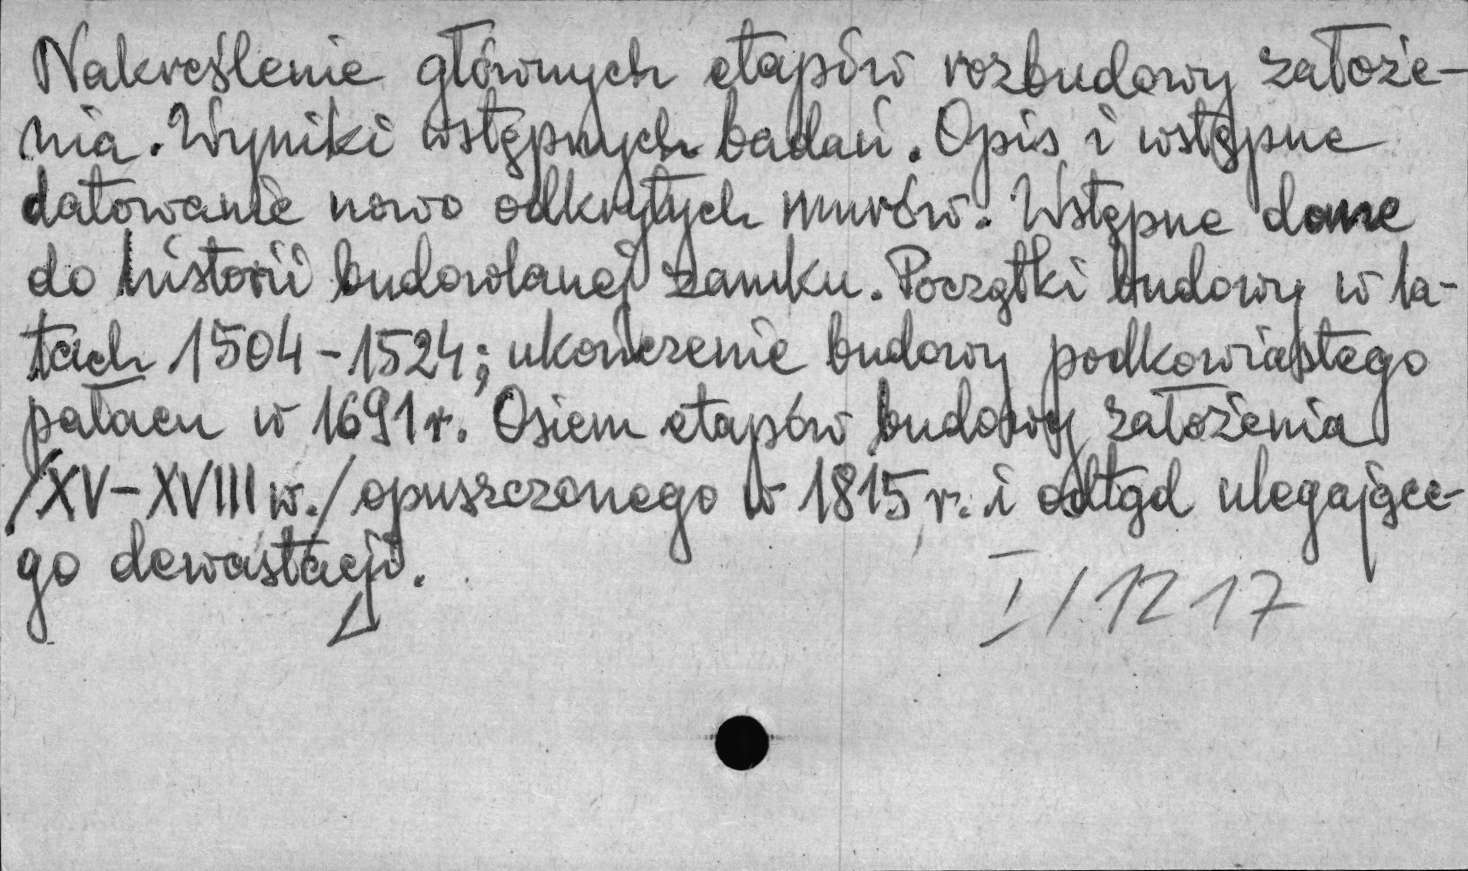 Nakreślenie głównych etapów rozbudowy założe-
nia. Wyniki wstępnych badań. Opis i wstępne
datowanie nowo odkrytych murów. Wstępne dane
do historii budowlanej zamku. Początki budowy w la-
tach 1504-1524; ukończenie budowy podkowiastego
pałacu w 1691 r. Osiem etapów budowy założenia
/XV-XVIII w./ opuszczonego w 1815 r. i odtąd ulegające-
go dewastacji.
I/1217